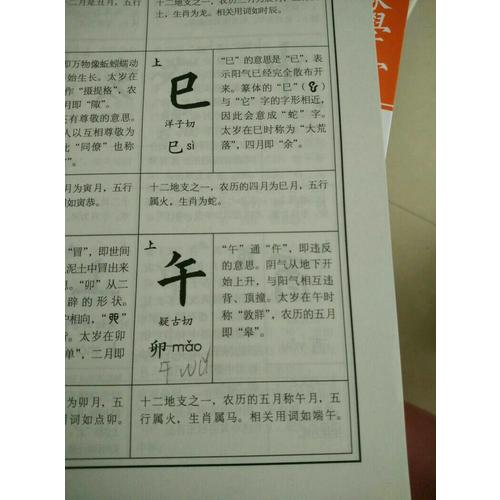 二月是丑月，五行
十二地支之一
土，生肖为龙。相关用词如时辰。
即万物像蚯蚓蠕动
始生长。太岁在
作“摄提格”，农
月即“陬”。
还有尊敬的意思。
人以互相尊敬为
此“同僚”也称
上
巳
洋子切
巳 sì
“巳”的意思是“已”，表
示阳气已经完全散布开
来。篆体的“巳”（）
与“它”字的字形相近，
因此会意成“蛇”字。
太岁在巳时称为“大荒
落”，四月即“余”。
月为寅月，五行
如寅恭。
十二地支之一，农历的四月为巳月，五行
属火，生肖为蛇。
“冒”，即世间
泥土中冒出来
思。“卯”从二
辟的形状。
中相向，“”
。太岁在卯
单”，二月即
上
午
疑古切
卯 mǎo
午 wǔ
“午”通“仵”，即违反
的意思。阴气从地下开
始上升，与阳气相互违
背、顶撞。太岁在午时
称“敦牂”，农历的五月
即“皋”。
为卯月，五
用词如点卯。
十二地支之一，农历的五月称午月，五
行属火，生肖属马。相关用词如端午。
學